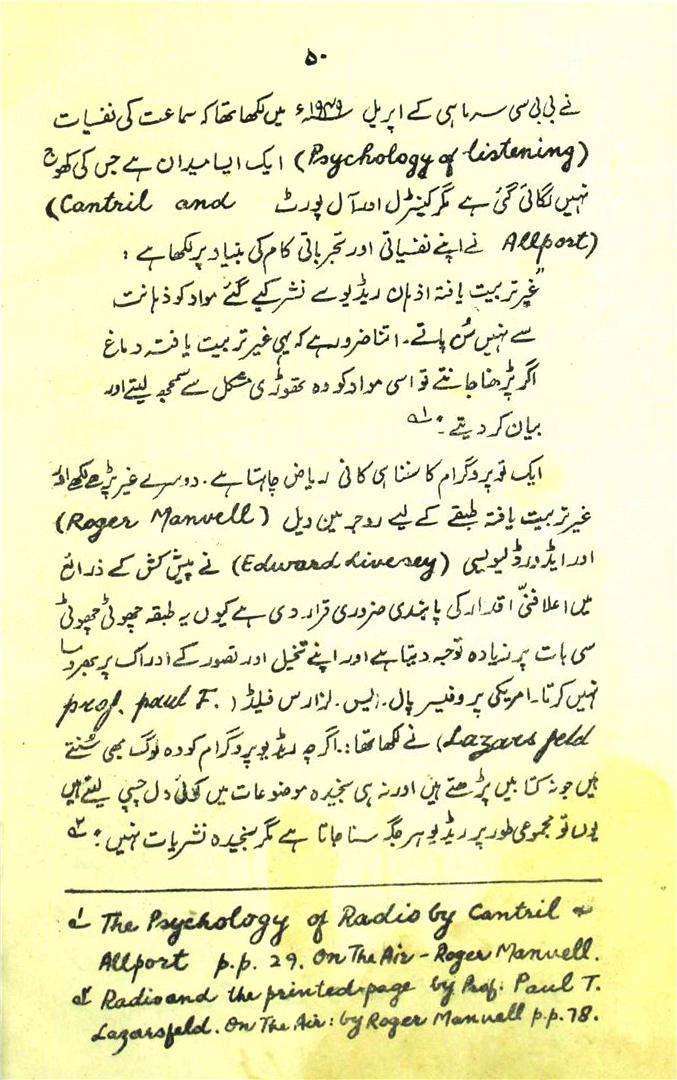 ۵۰
نے بی بی سی سہ ماہی کے اپریل ۱۹۴۹ء میں لکھا تھا کہ سماعت کی نفسیات
(Psychology of listening) ایک ایسا میدان ہے جس کی کھوج
نہیں لگائی گئی ہے مگر کینٹرل اور آل پورٹ (Cantril and
Allport) نے اپنے نفسیاتی اور تجرباتی کام کی بنیاد پر لکھا ہے :
"غیر تربیت یافتہ اذہان ریڈیو سے نشر کیے گئے مواد کو ذہانت
سے نہیں سُن پاتے۔ اتنا ضرور ہے کہ یہی غیر تربیت یافتہ دماغ
اگر پڑھنا جانتے تو اسی مواد کو وہ تھوڑی مشکل سے سمجھ لیتے اور
بیان کر دیتے ۔" ۱؎
ایک تو پروگرام کا سننا ہی کافی ریاض چاہتا ہے۔ دوسرے غیر پڑھے لکھے اور
غیر تربیت یافتہ طبقے کے لیے روجر مین ویل (Roger Manvell)
اور ایڈورڈ لیویسی (Edward Livesey) نے پیش کش کے ذرائع
میں اعلا فنّی اقدار کی پابندی ضروری قرار دی ہے کیوں یہ طبقہ چھوٹی چھوٹی
سی بات پر زیادہ توجہ دیتا ہے اور اپنے تخیل اور تصور کے ادراک پر بھروسا
نہیں کرتا۔ امریکی پروفیسر پال۔ ایس۔ لزارس فیلڈ (prof. paul F.
Lazarsfeld) نے لکھا تھا :۔ اگرچہ ریڈیو پروگرام کو وہ لوگ بھی سُنتے
ہیں جو نہ کتابیں پڑھتے ہیں اور نہ ہی سنجیدہ موضوعات میں کوئی دل چسپی لیتے ہیں
یوں تو مجموعی طور پر ریڈیو ہر جگہ سنا جاتا ہے مگر سنجیدہ نشریات نہیں ۔" ۲؎
۱؎ The Psychology of Radio by Cantril &
Allport p.p. 29. On The Air - Roger Manvell.
۲؎ Radio and the printed page by Prof: Paul T.
Lazarsfeld. On The Air : by Roger Manvell p.p. 78.